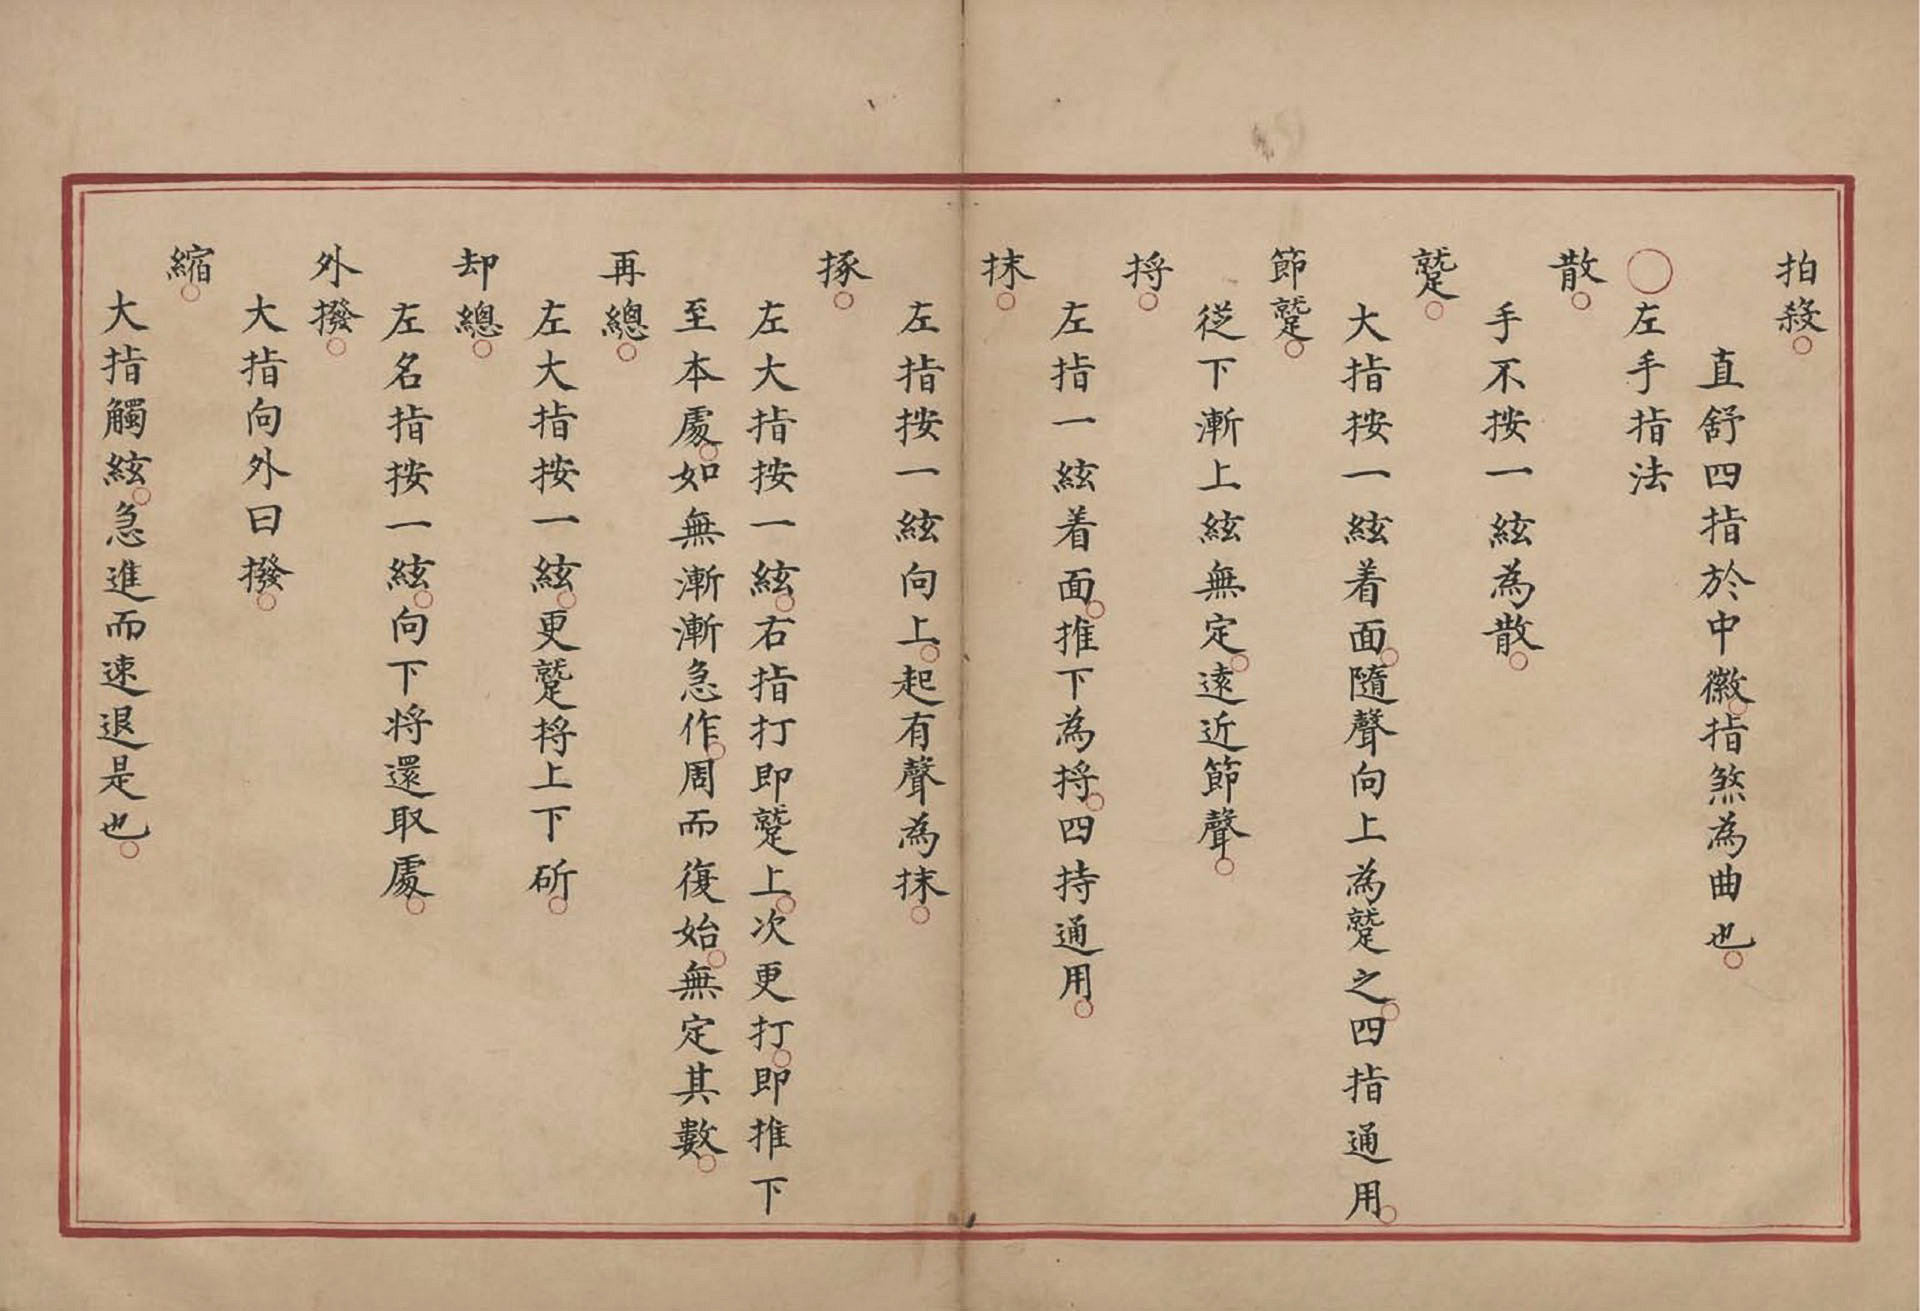 拍殺。
直舒四指於中徽。指煞為曲也。
○左手指法
散。
手不按一絃為散。
蹵。
大指按一絃着面。隨聲向上為蹵之。四指通用。
節蹵。
從下漸上絃無定。遠近節聲。
捋。
左指一絃着面。推下為捋。四持通用。
抹。
左指按一絃向上。起有聲為抹。
㧻。
左大指按一絃。右指打即蹵上。次更打。即推下
至本處。如無漸漸急作。周而復始。無定其數。
再總。
左大指按一絃。更蹵捋上下斫。
却總。
左名指按一絃。向下將還取處。
外撥。
大指向外曰撥。
縮。
大指觸絃。急進而速退是也。